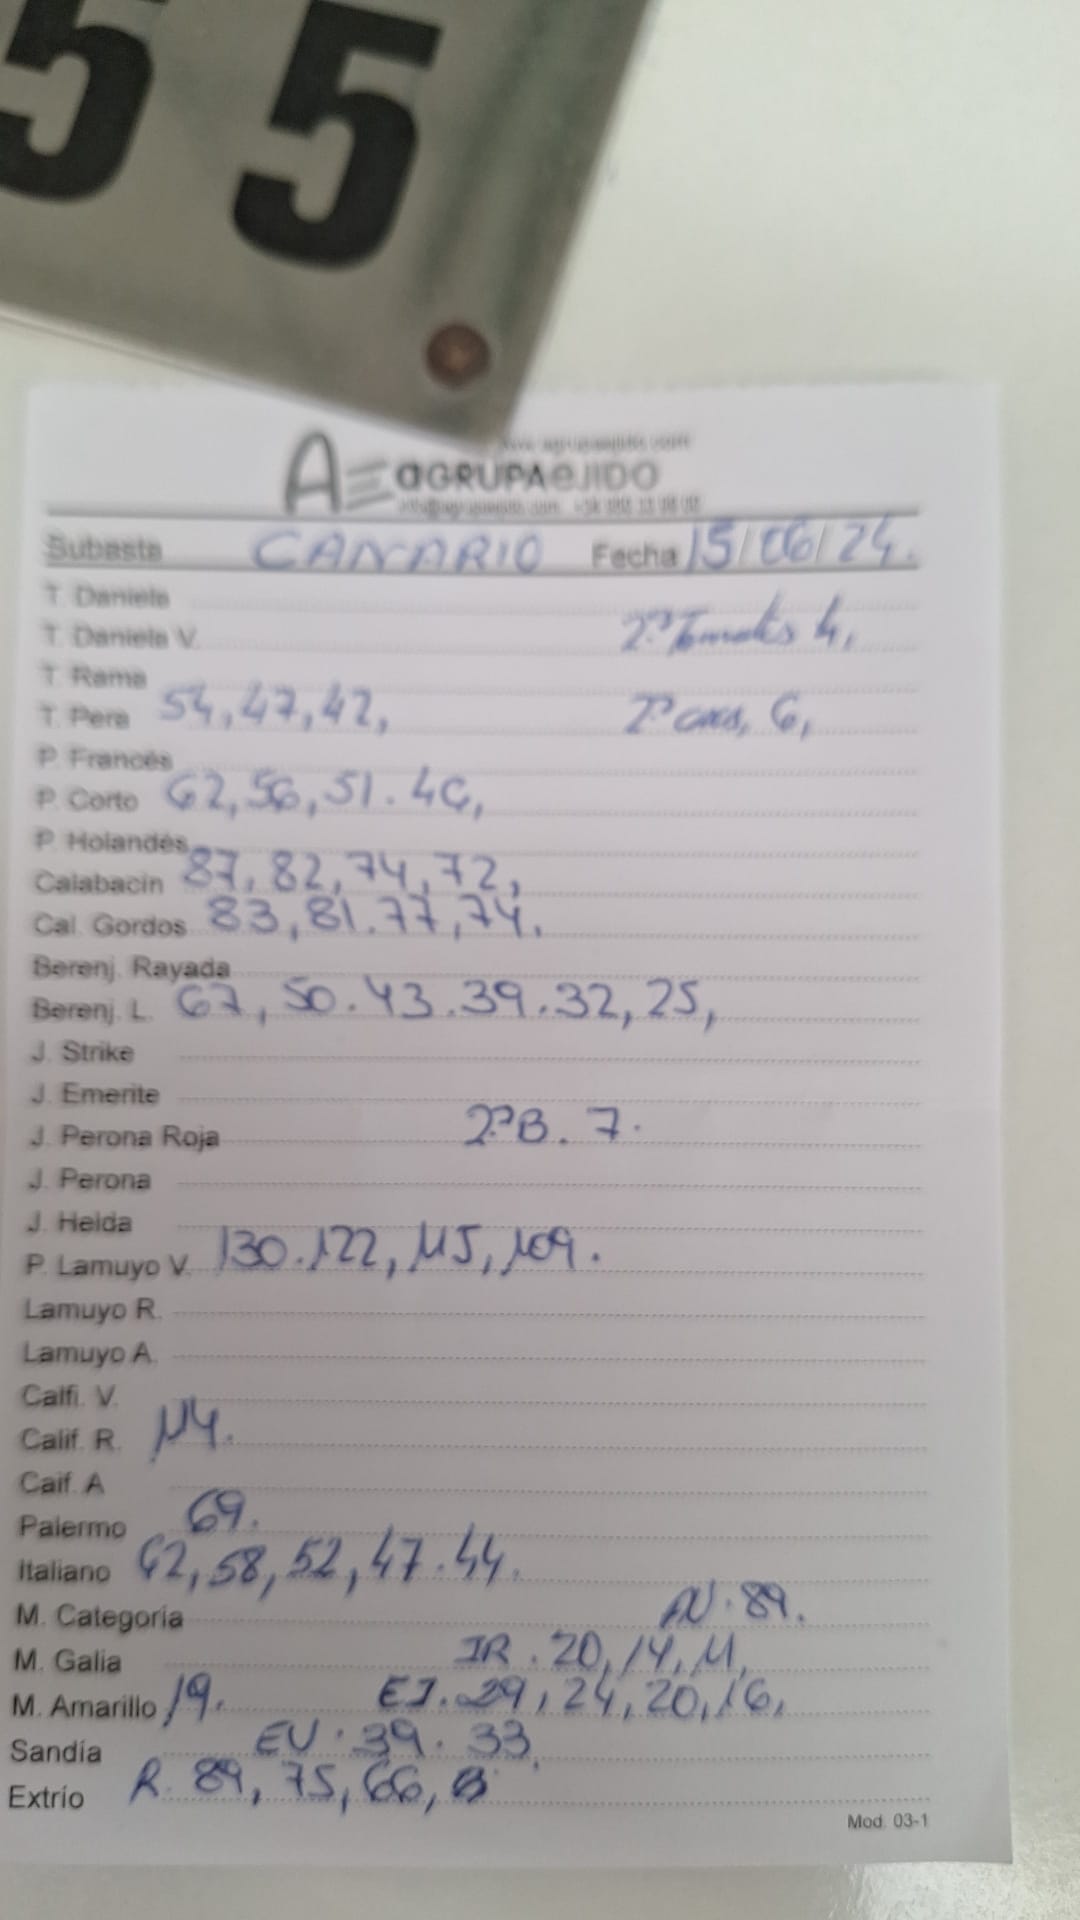 55
www.agrupaejido.com
AE aGRUPAeJIDO
Subasta CANARIO Fecha 15/06/24.
T. Daniela
T. Daniela V. 2ª Tomates 4,
T. Rama
T. Pera 54, 47, 42, 2ª 6,
P. Francés
P. Corto 62, 56, 51. 46,
P. Holandés
Calabacín 87, 82, 74, 72,
Cal. Gordos 83, 81. 77, 74.
Berenj. Rayada
Berenj. L. 67, 50. 43. 39. 32, 25,
J. Strike
J. Emerite
J. Perona Roja 2ª B. 7.
J. Perona
J. Helda
P. Lamuyo V. 130. 122, 115, 109.
Lamuyo R.
Lamuyo A.
Calfi. V.
Calif. R. 114.
Caif. A
Palermo 69.
Italiano 62, 58, 52, 47. 44.
M. Categoría 89.
M. Galia IR. 20, 14, 11,
M. Amarillo 19. EJ. 29, 24, 20, 16,
Sandía EV. 39. 33,
Extrío R. 89, 75, 66,
Mod. 03-1